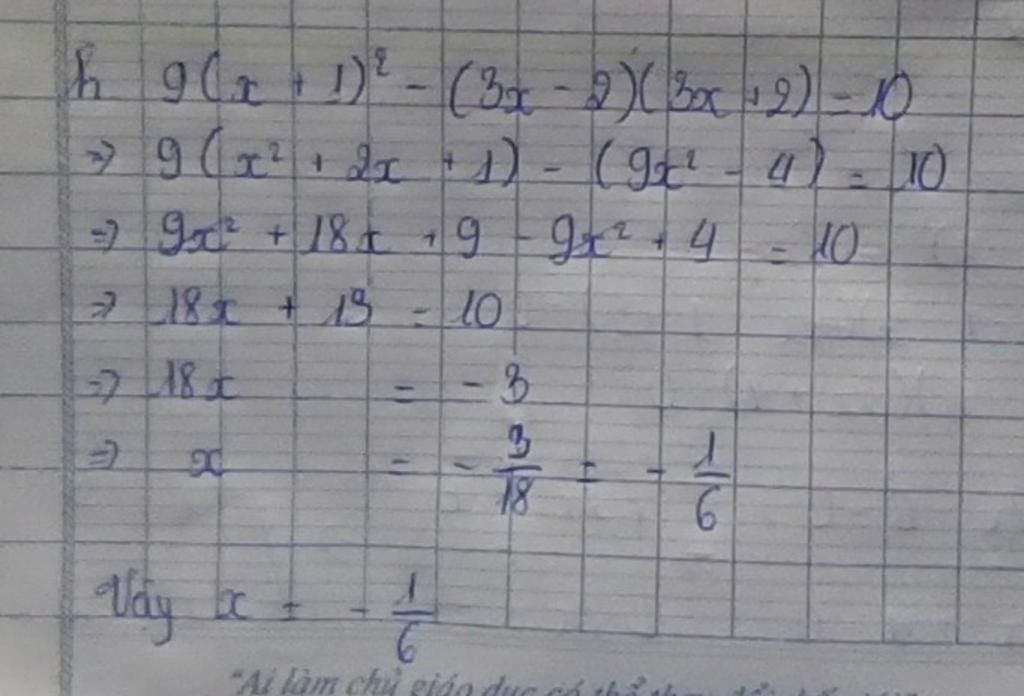 h 9(x + 1)² - (3x - 2)(3x + 2) = 10
=> 9(x² + 2x + 1) - (9x² - 4) = 10
=> 9x² + 18x + 9 - 9x² + 4 = 10
=> 18x + 13 = 10
=> 18x = - 3
=> x = - 3/18 = - 1/6
Vậy x = - 1/6
"Ai làm chủ giáo dục có thể